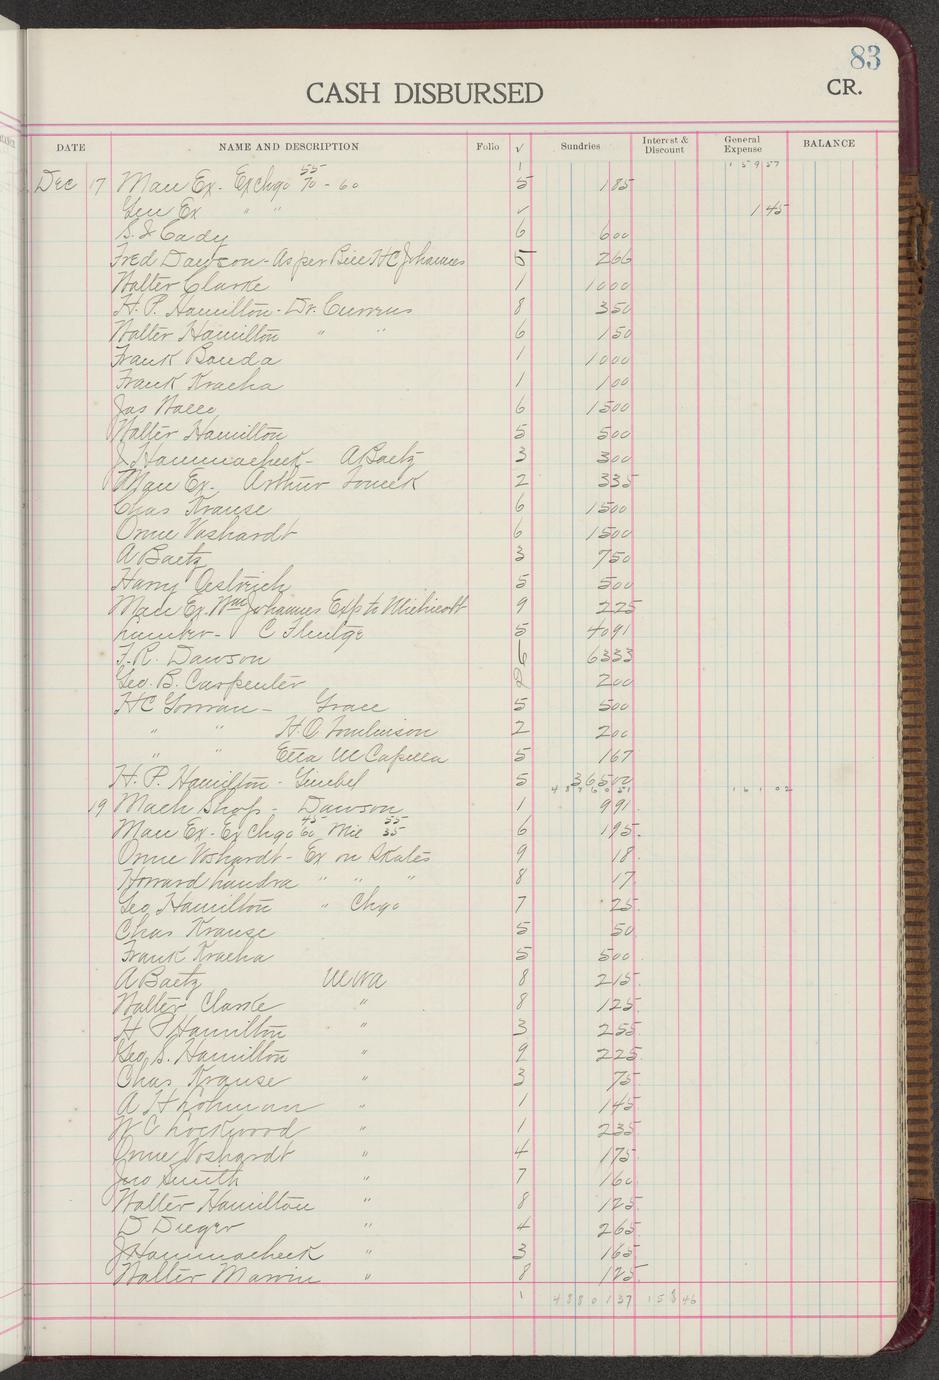 83
CASH DISBURSED
CR.
DATE NAME AND DESCRIPTION Folio ✓ Sundries Interest & Discount General Expense BALANCE
1 15957
55
Dec 17 Man Ex. Ex Chgo 70 - 60 5 185
Gen Ex " " ✓ 145
Cady 6 600
Fred Dawson - As per Bill HC Johannes 5 266
Walter Clarke 1 1000
H. P. Hamilton - Dr. Currens 8 350
Walter Hamilton " " 6 150
Frank Bouda 1 1000
Frank Kracha 1 100
Jas 6 1500
Walter Hamilton 5 500
J Hammacheck - A Baetz 3 300
Man Ex. Arthur 2 335
Chas Krause 6 1500
Orme Voshardt 6 1500
A Baetz 3 750
Harry Oestreich 5 500
Man Ex. Wm Johannes Exp to Mishicott 9 225
Lumber - C 5 4091
F. R. Dawson 6 6333
Geo. B. Carpenter 2 200
HC Gorman - Grace 5 500
" " H. O. Tomlinson 2 200
" " Etta M Capella 5 167
H. P. Hamilton - Gimbel 5 36500
16102
19 Mach Shop - Dawson 1 991
45 55
Man Ex - Ex Chgo 60 Mil 35 6 195.
Orme Voshardt - Ex on Skates 9 18.
Howard Landra " " " 8 17.
Geo Hamilton " Chgo 7 25.
Chas Krause 5 50
Frank Kracha 5 500
A Baetz MWA 8 215.
Walter Clarke " 8 125.
H P Hamilton " 3 255.
Geo. S. Hamilton " 9 225.
Chas Krause " 3 75.
A H Lohman " 1 145.
W C Lockwood " 1 235.
Orme Voshardt " 4 175.
Jno Smith " 7 160.
Walter Hamilton " 8 125.
D Dreger " 4 265.
J Hammacheck " 3 165.
Walter Marvin " 8 125.
1 4880137 15846